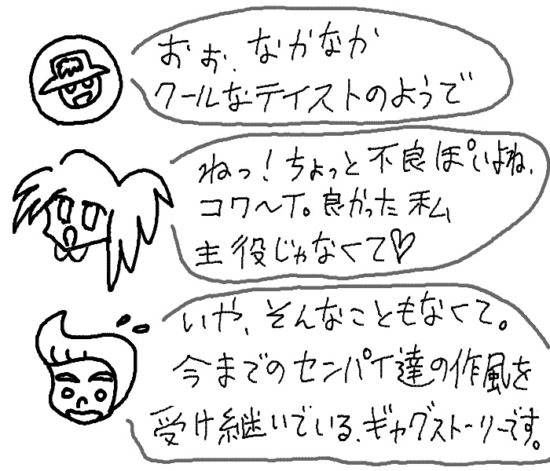 おぉ、なかなか
クールなテイストのようで
ねっ！ちょっと不良ぽいよね、
コワ〜イ。良かった私
主役じゃなくて♡
いや、そんなこともなくて。
今までのセンパイ達の作風を
受け継いでいる、ギャグストーリーです。